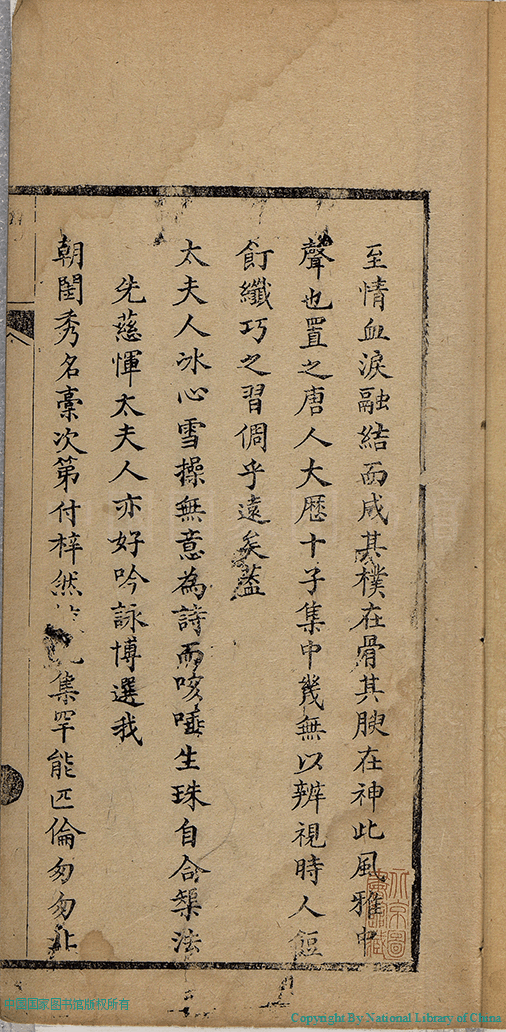 至情血淚融結而成其樸在骨其腴在神此風雅中
聲也置之唐人大歷十子集中幾無以辨視時人餖
飣纖巧之習倜乎遠矣蓋
太夫人冰心雪操無意為詩而咳唾生珠自合榘法
先慈惲太夫人亦好吟詠博選我
朝閨秀名稾次第付梓然集罕能匹倫匆匆北
北京圖
中国国家图书馆版权所有
Copyright By National Library of China